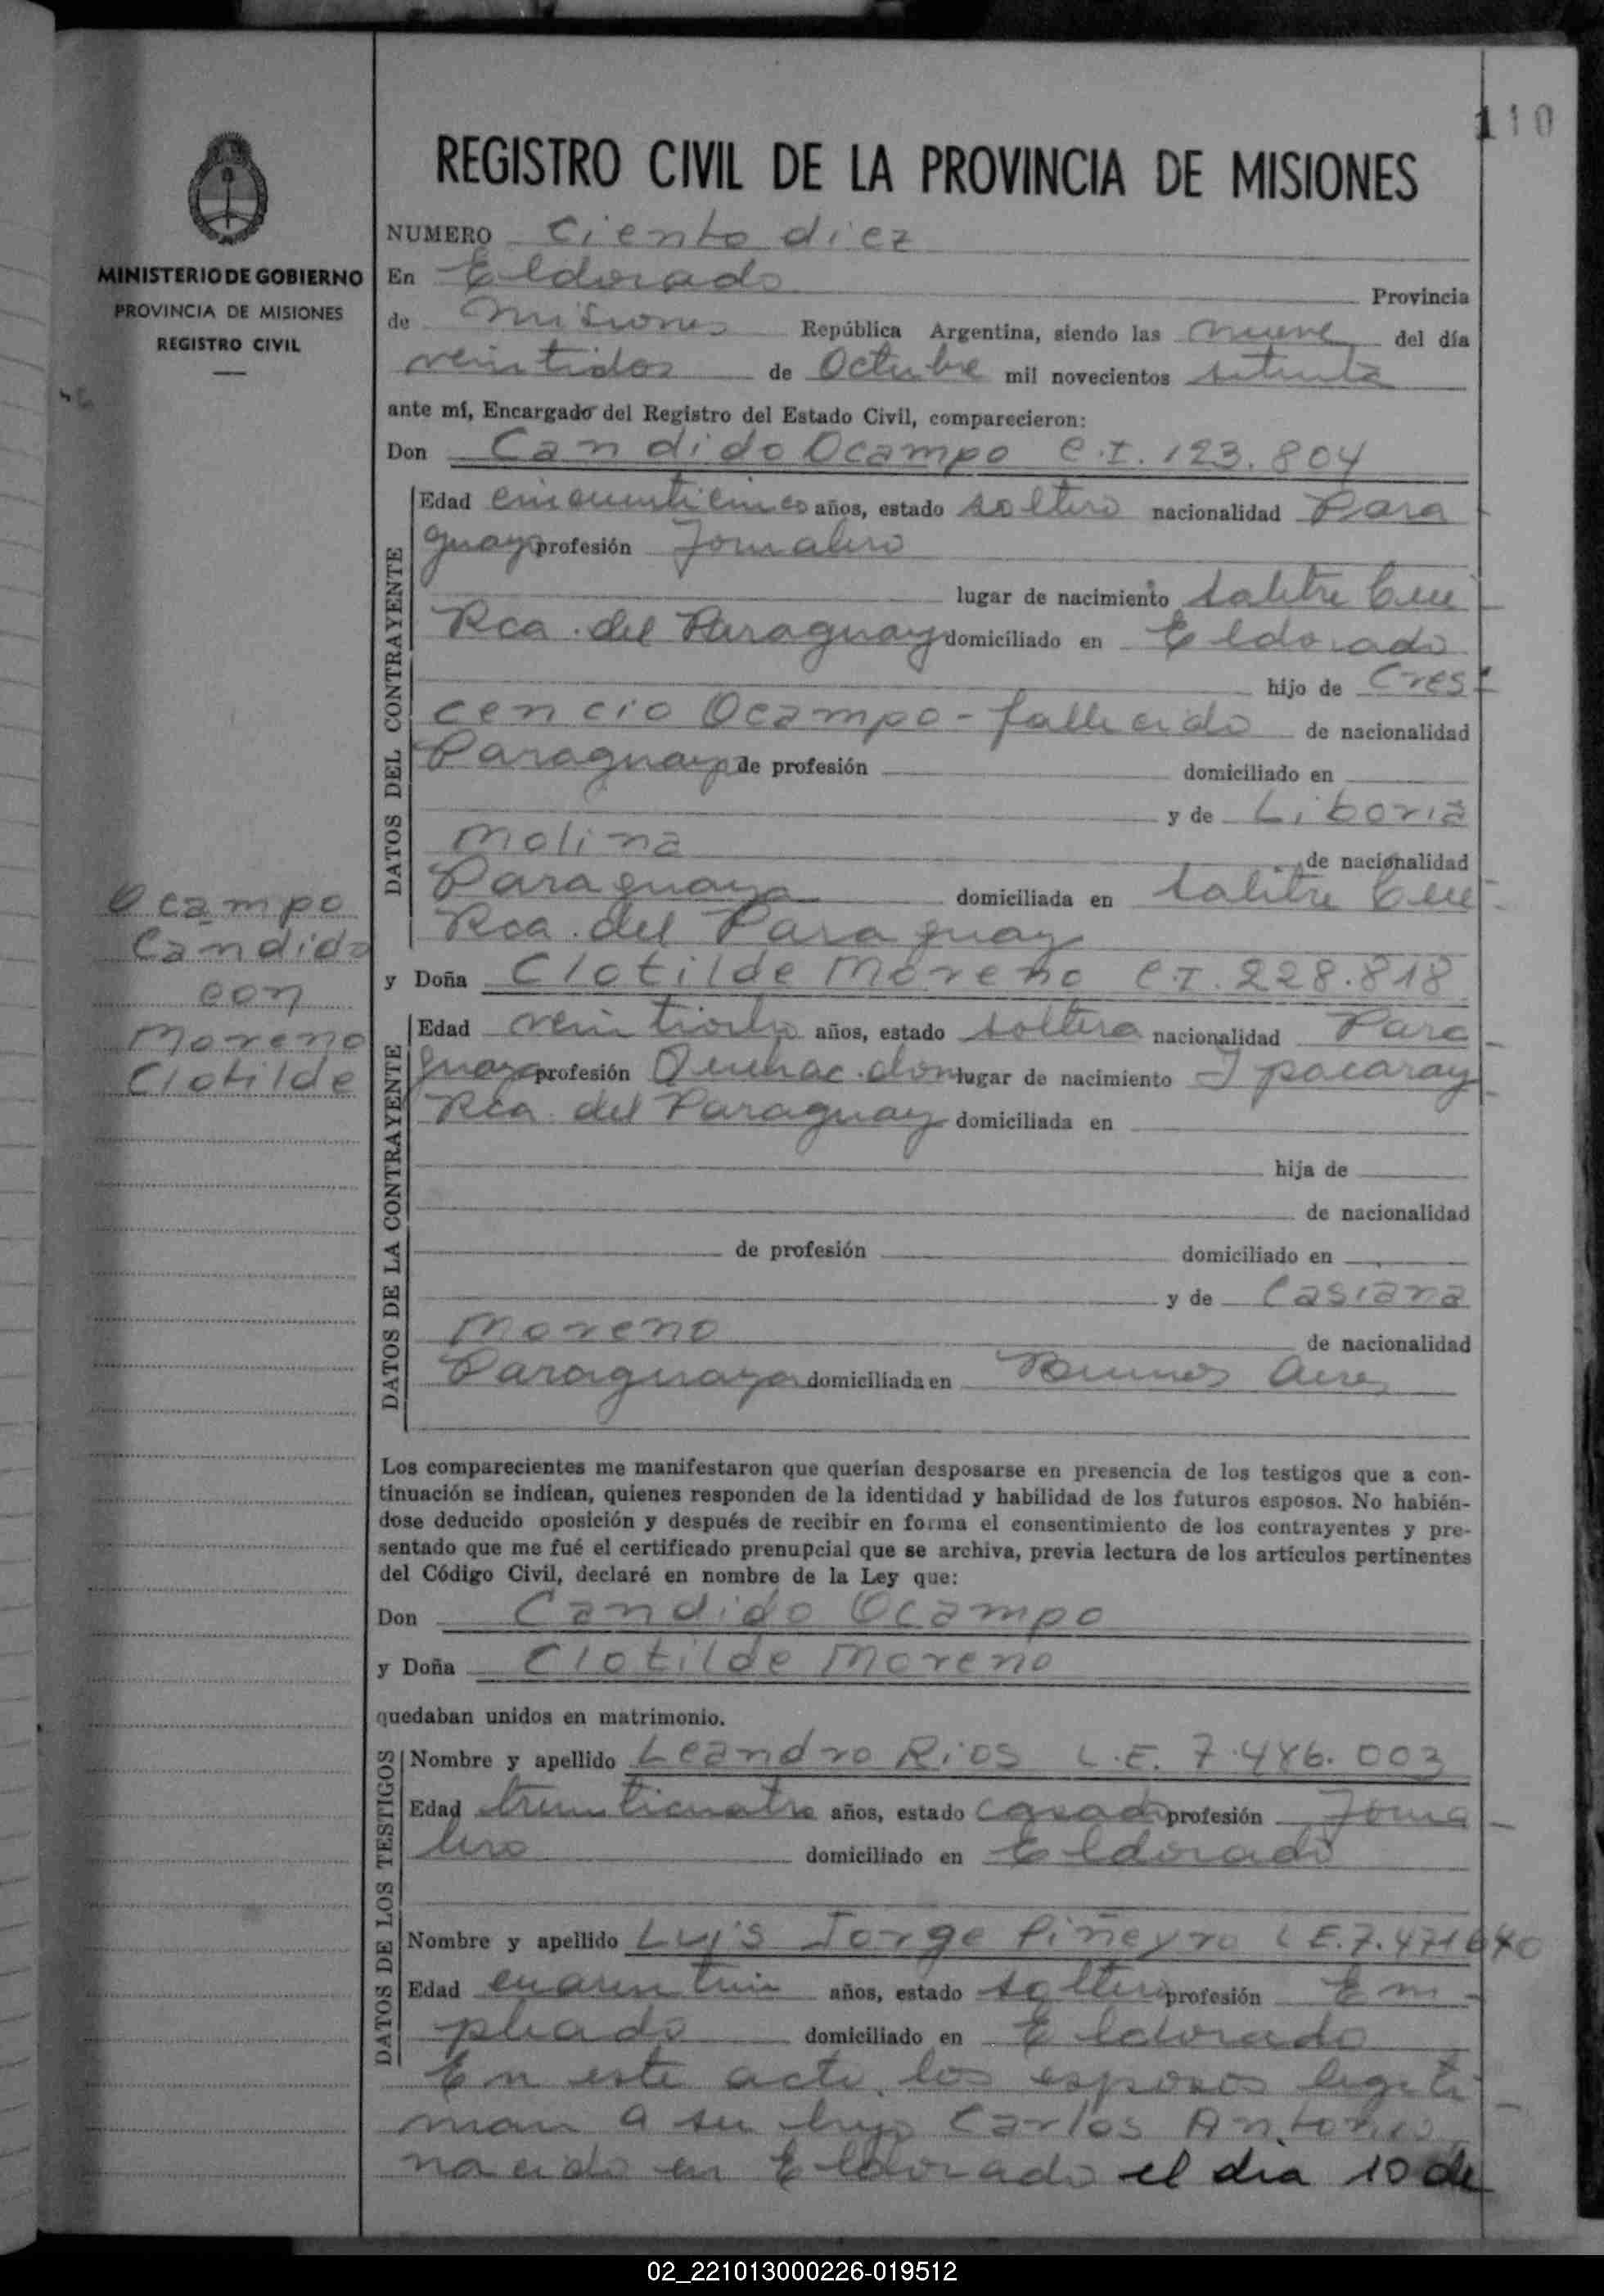 110
REGISTRO CIVIL DE LA PROVINCIA DE MISIONES
MINISTERIO DE GOBIERNO
PROVINCIA DE MISIONES
REGISTRO CIVIL
NUMERO Ciento diez
En Eldorado Provincia
de Misiones República Argentina, siendo las nueve del día
veintidos de Octubre mil novecientos setenta
ante mí, Encargado del Registro del Estado Civil, comparecieron:
Don Candido Ocampo C.I. 123.804
DATOS DEL CONTRAYENTE
Edad cincuenticinco años, estado soltero nacionalidad Para
guayo profesión Jornalero
lugar de nacimiento Salitre Cue
Rca. del Paraguay domiciliado en Eldorado
hijo de Cres
cencio Ocampo - fallecido de nacionalidad
Paraguayo de profesión domiciliado en
y de Liboria
Molina de nacionalidad
Paraguaya domiciliada en Salitre Cue
Rca. del Paraguay
Ocampo
Candido
con
Moreno
Clotilde
y Doña Clotilde Moreno C.I. 228.818
DATOS DE LA CONTRAYENTE
Edad veintiocho años, estado soltera nacionalidad Para
guaya profesión Quehac. dom lugar de nacimiento Ypacaray
Rca. del Paraguay domiciliada en
hija de
de nacionalidad
de profesión domiciliado en
y de Casiana
Moreno de nacionalidad
Paraguaya domiciliada en Buenos Aires
Los comparecientes me manifestaron que querían desposarse en presencia de los testigos que a con-
tinuación se indican, quienes responden de la identidad y habilidad de los futuros esposos. No habién-
dose deducido oposición y después de recibir en forma el consentimiento de los contrayentes y pre-
sentado que me fué el certificado prenupcial que se archiva, previa lectura de los artículos pertinentes
del Código Civil, declaré en nombre de la Ley que:
Don Candido Ocampo
y Doña Clotilde Moreno
quedaban unidos en matrimonio.
DATOS DE LOS TESTIGOS
Nombre y apellido Leandro Rios L.E. 7.486.003
Edad treinticuatro años, estado casado profesión Jorna
lero domiciliado en Eldorado
Nombre y apellido Luis Jorge Piñeyro L.E.7.471640
Edad años, estado soltero profesión Em
pleado domiciliado en Eldorado
En este acto, los esposos legiti
man a su hijo Carlos Antonio,
nacido en Eldorado el dia 10 de
02_221013000226-019512